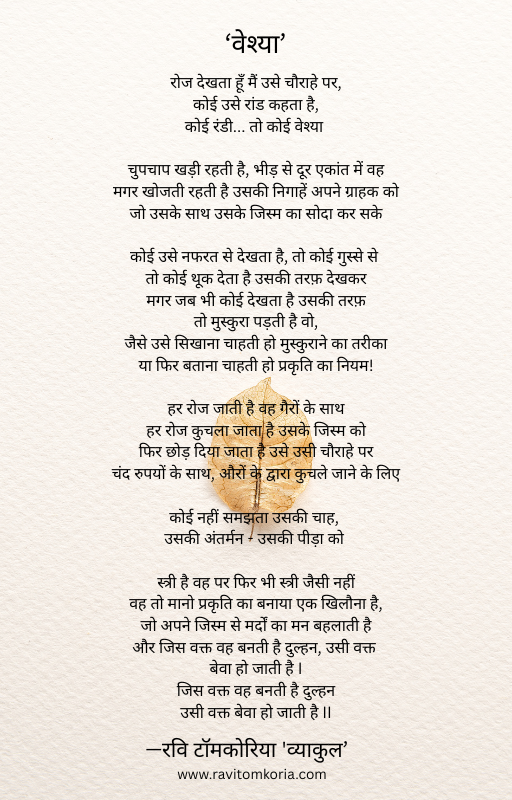 ‘वेश्या’
रोज देखता हूँ मैं उसे चौराहे पर,
कोई उसे रांड कहता है,
कोई रंडी... तो कोई वेश्या
चुपचाप खड़ी रहती है, भीड़ से दूर एकांत में वह
मगर खोजती रहती है उसकी निगाहें अपने ग्राहक को
जो उसके साथ उसके जिस्म का सोदा कर सके
कोई उसे नफरत से देखता है, तो कोई गुस्से से
तो कोई थूक देता है उसकी तरफ़ देखकर
मगर जब भी कोई देखता है उसकी तरफ़
तो मुस्कुरा पड़ती है वो,
जैसे उसे सिखाना चाहती हो मुस्कुराने का तरीका
या फिर बताना चाहती हो प्रकृति का नियम!
हर रोज जाती है वह गैरों के साथ
हर रोज कुचला जाता है उसके जिस्म को
फिर छोड़ दिया जाता है उसे उसी चौराहे पर
चंद रुपयों के साथ, औरों के द्वारा कुचले जाने के लिए
कोई नहीं समझता उसकी चाह,
उसकी अंतर्मन - उसकी पीड़ा को
स्त्री है वह पर फिर भी स्त्री जैसी नहीं
वह तो मानो प्रकृति का बनाया एक खिलौना है,
जो अपने जिस्म से मर्दों का मन बहलाती है
और जिस वक्त वह बनती है दुल्हन, उसी वक्त
बेवा हो जाती है I
जिस वक्त वह बनती है दुल्हन
उसी वक्त बेवा हो जाती है II
—रवि टॉमकोरिया 'व्याकुल’
www.ravitomkoria.com